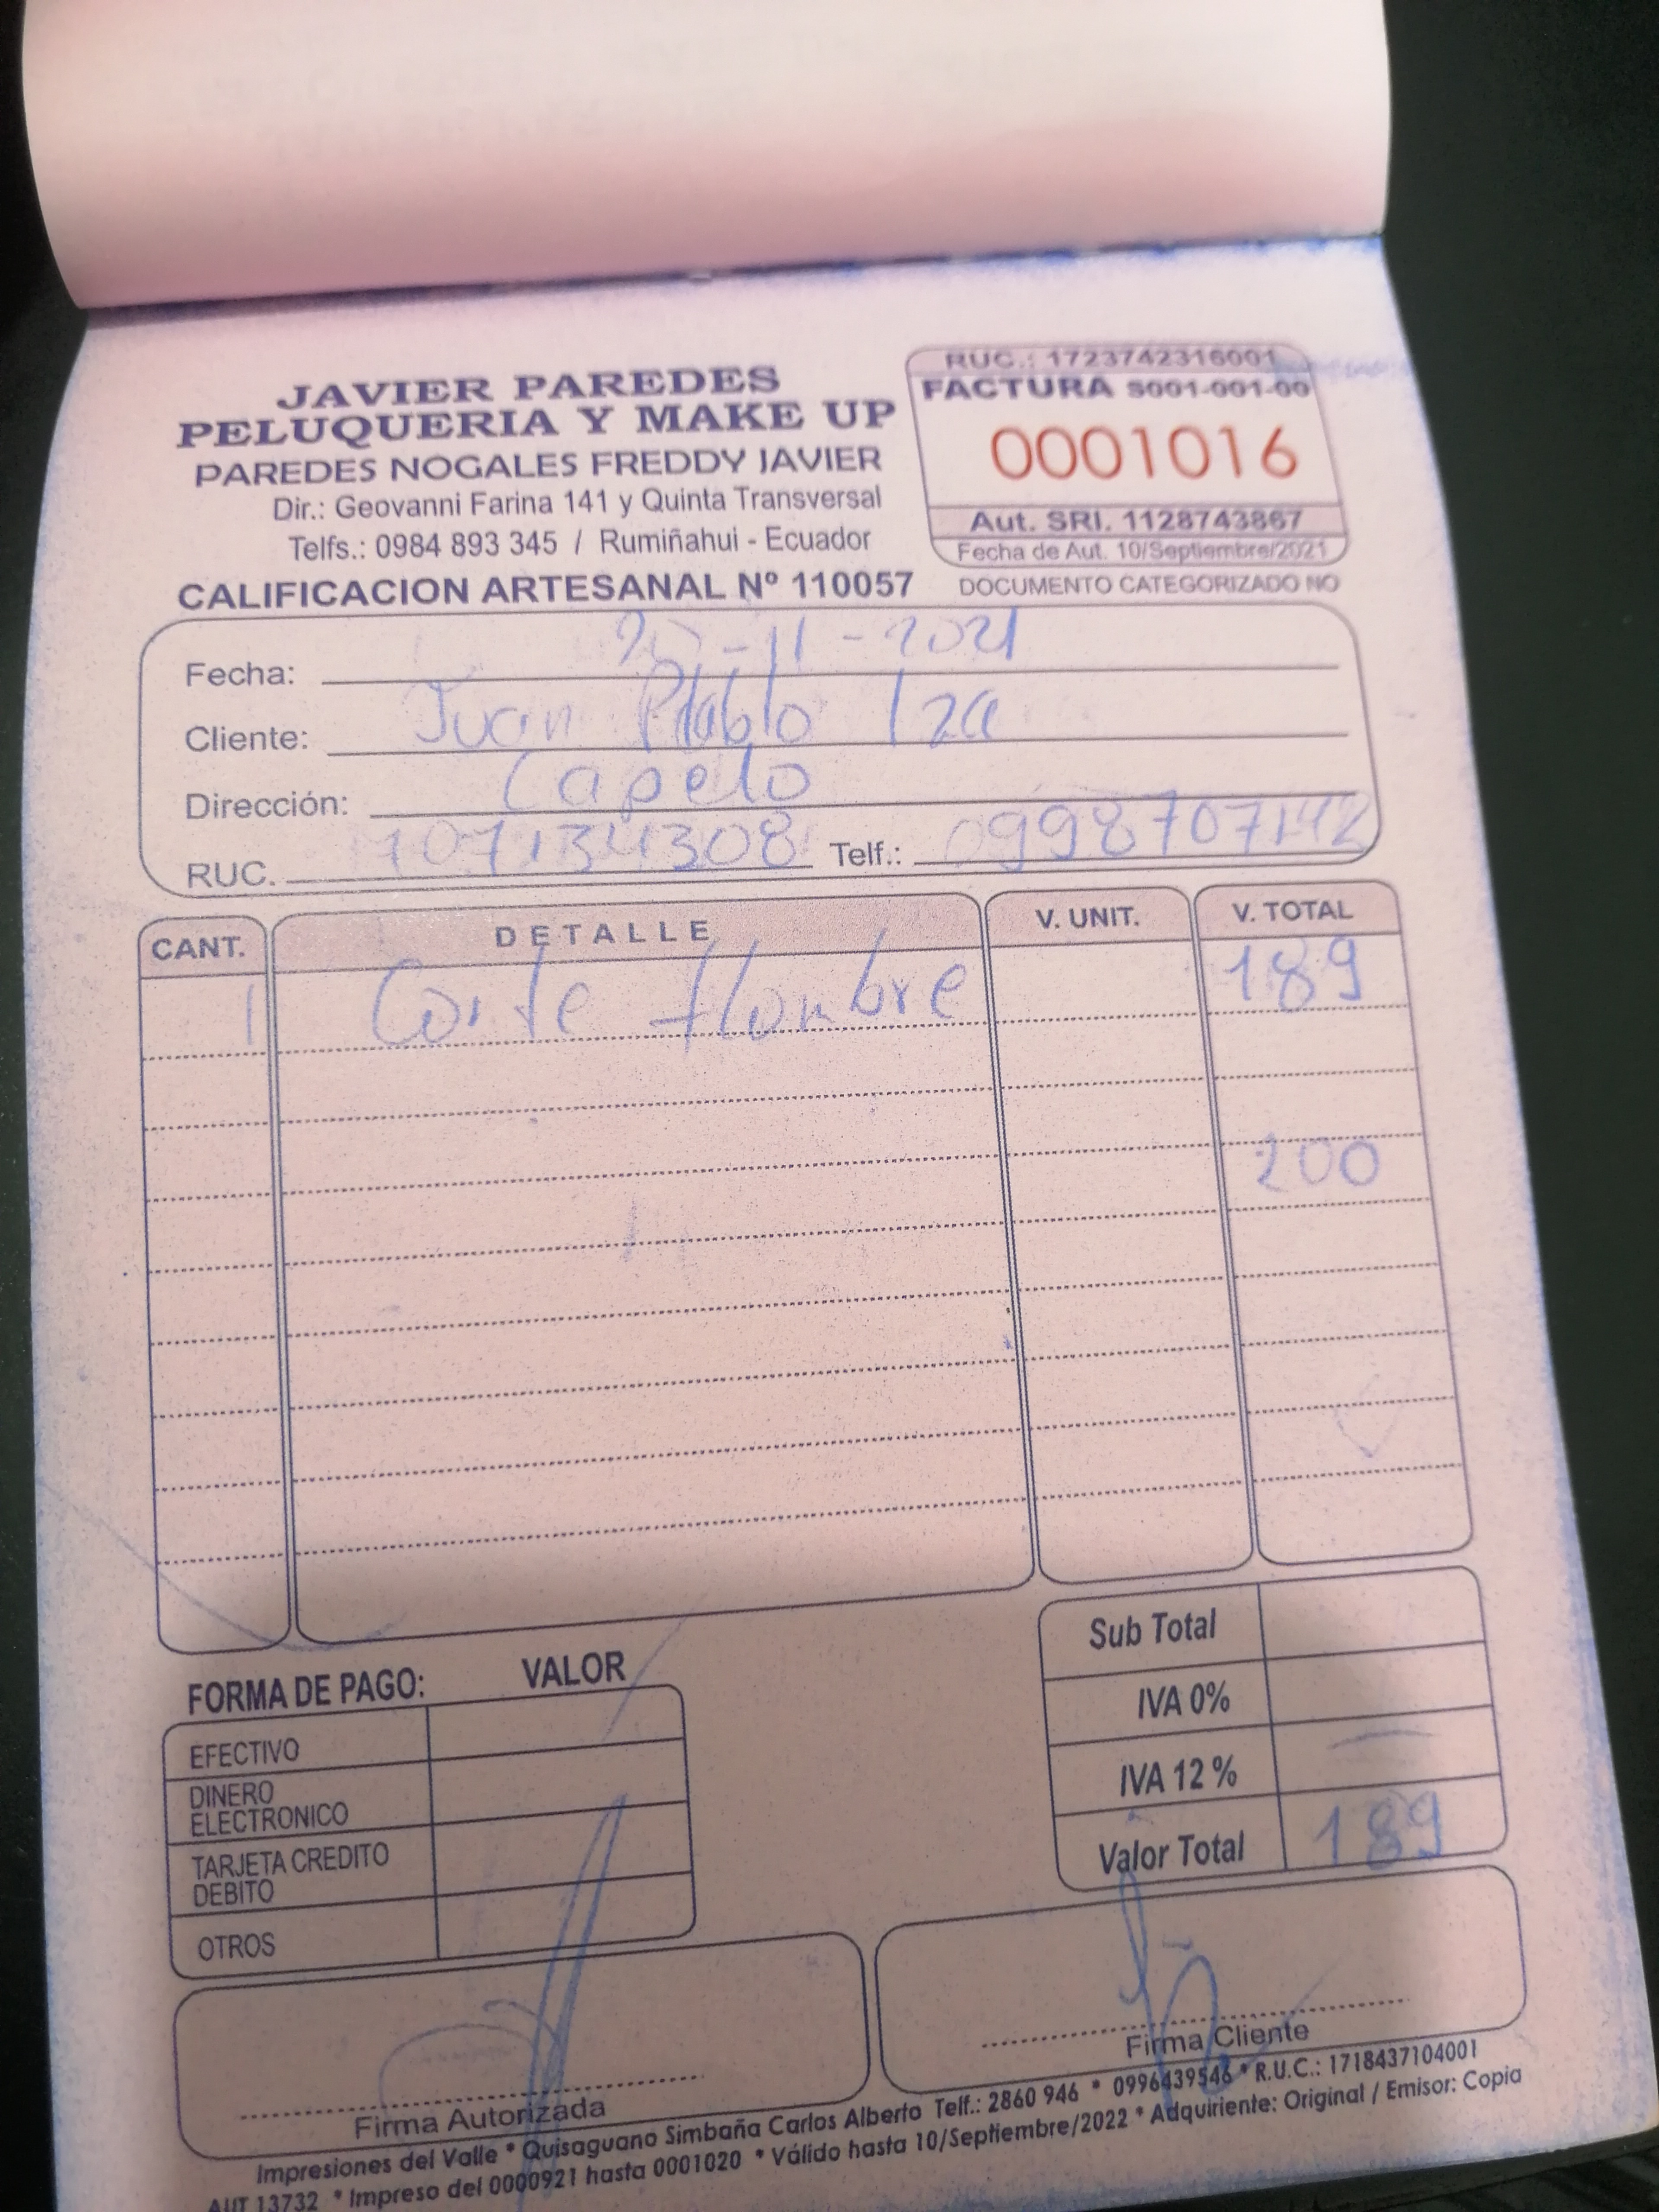 JAVIER PAREDES
PELUQUERIA Y MAKE UP
PAREDES NOGALES FREDDY JAVIER
Dir.: Geovanni Farina 141 y Quinta Transversal
Telfs.: 0984 893 345 / Rumiñahui - Ecuador
CALIFICACION ARTESANAL Nº 110057
RUC.: 1723742316001
FACTURA S001-001-00
0001016
Aut. SRI. 1128743867
Fecha de Aut. 10/Septiembre/2021
DOCUMENTO CATEGORIZADO NO
Fecha: -11-2021
Cliente: Juan Pablo Iza
Dirección: Capelo
RUC. Telf.: 0998707142
CANT. DETALLE V. UNIT. V. TOTAL
1 Corte Hombre 189
200
FORMA DE PAGO: VALOR
EFECTIVO
DINERO
ELECTRONICO
TARJETA CREDITO
DEBITO
OTROS
Sub Total
IVA 0%
IVA 12 %
Valor Total 189
Firma Autorizada
Firma Cliente
Impresiones del Valle * Quisaguano Simbaña Carlos Alberto Telf.: 2860 946 * 0996439546 * R.U.C.: 1718437104001
AUT 13732 * Impreso del 0000921 hasta 0001020 * Válido hasta 10/Septiembre/2022 * Adquiriente: Original / Emisor: Copia